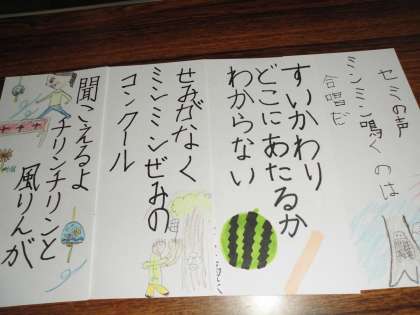 セミの声
ミンミン鳴くのは
合唱だ
すいかわり
どこにあたるか
わからない
せみがなく
ミンミンぜみの
コンクール
風りんが
チリンチリンと
聞こえるよ